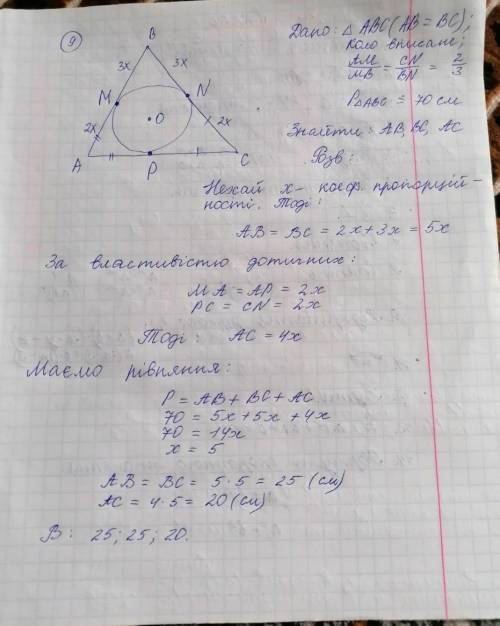 9
Дано: △ ABC (AB = BC);
коло вписане;
AM/MB = CN/BN = 2/3
P△ABC = 70 см
Знайти: AB, BC, AC
Розв:
B
3x
3x
M
N
O
2x
2x
A
P
C
Нехай x - коеф. пропорцій-
ності. Тоді:
AB = BC = 2x + 3x = 5x
За властивістю дотичних:
MA = AP = 2x
PC = CN = 2x
Тоді: AC = 4x
Маємо рівняння:
P = AB + BC + AC
70 = 5x + 5x + 4x
70 = 14x
x = 5
AB = BC = 5 · 5 = 25 (см)
AC = 4 · 5 = 20 (см)
В: 25; 25; 20.